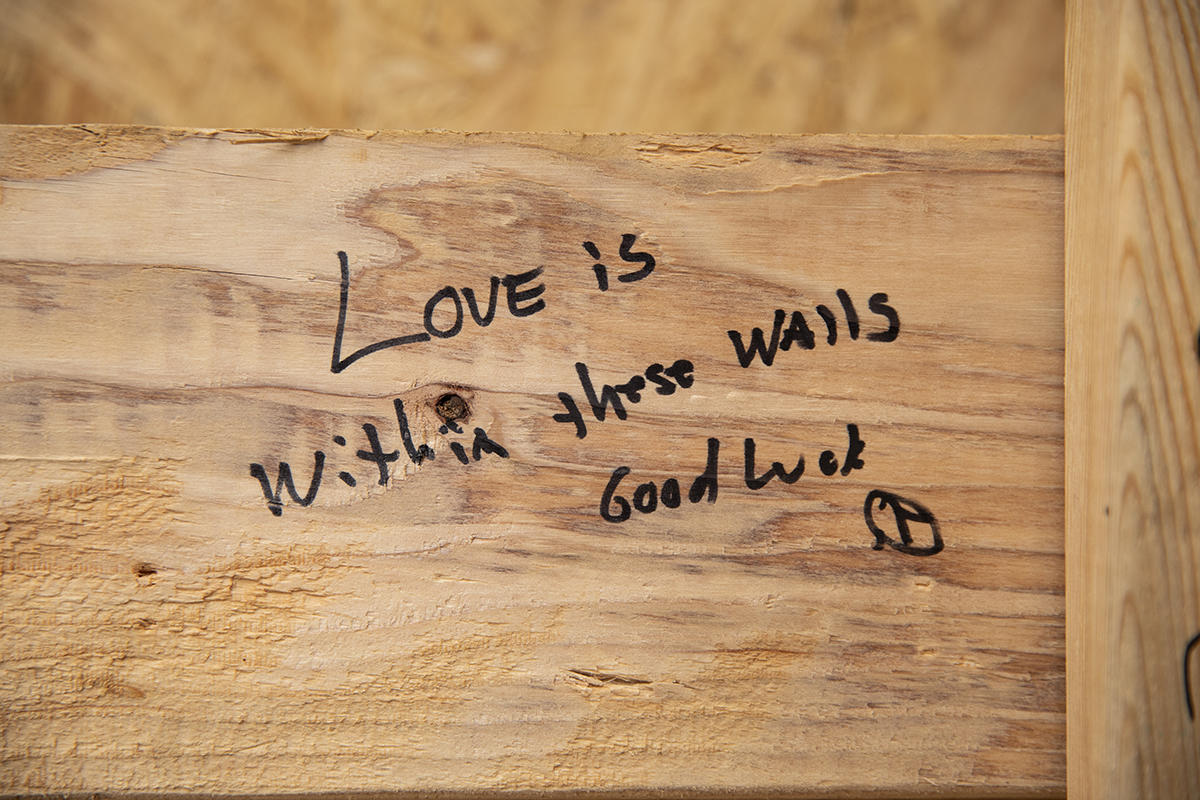 LOVE is
Within these WAlls
Good Luck